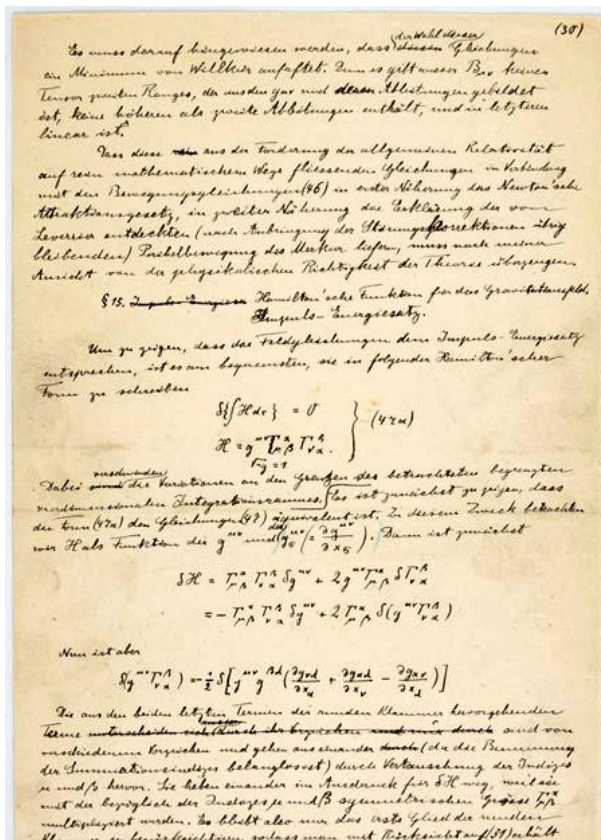 (30)
der Wahl dieser
Es muss darauf hingewiesen werden, dass diesen Gleichungen
ein Minimum von Willkür anhaftet. Denn es gibt ausser Bμν keinen
Tensor zweiten Ranges, der aus den gμν und deren Ableitungen gebildet
ist, keine höheren als zweite Ableitungen enthält, und in letzteren
linear ist.
Dass diese aus der Forderung der allgemeinen Relativität
auf rein mathematischem Wege fliessenden Gleichungen in Verbindung
mit den Bewegungsgleichungen (46) in erster Näherung das Newton'sche
Attraktionsgesetz, in zweiter Näherung die Erklärung der vom
Leverrier entdeckten (nach Anbringung der Störungskorrektionen übrig
bleibenden) Perihelbewegung des Merkur liefern, muss nach meiner
Ansicht von der physikalischen Richtigkeit der Theorie überzeugen.
§ 15. Impuls-Energiesa Hamilton'sche Funktion für das Gravitationsfeld.
Impuls-Energiesatz.
Um zu zeigen, dass die Feldgleichungen dem Impuls-Energiesatz
entsprechen, ist es am bequemsten, sie in folgender Hamilton'scher
Form zu schreiben
δ{∫H dτ} = 0
H = g^{μν} Γ^α_{μβ} Γ^β_{να}. } (47a)
√-g = 1
verschwinden
Dabei sind die Variationen an den Grenzen des betrachteten begrenzten
vierdimensionalen Integrationsraumes. Es ist zunächst zu zeigen, dass
die Form (47a) den Gleichungen (47) äquivalent ist. Zu diesem Zweck betrachten
wir H als Funktion der g^{μν} und der g^{μν}_σ (= ∂g^{μν}/∂x_σ). Dann ist zunächst
δH = Γ^α_{μβ} Γ^β_{να} δg^{μν} + 2 g^{μν} Γ^α_{μβ} δΓ^β_{να}
= − Γ^α_{μβ} Γ^β_{να} δg^{μν} + 2 Γ^α_{μβ} δ(g^{μν} Γ^β_{να})
Nun ist aber
δ(g^{μν} Γ^β_{να}) = −½ δ[g^{μν} g^{βλ} (∂g_{νλ}/∂x_α + ∂g_{αλ}/∂x_ν − ∂g_{αν}/∂x_λ)]
Die aus den beiden letzten Termen der runden Klammer hervorgehenden
Terme unterscheiden sich durch ihr Vorzeichen und nur durch sind von
verschiedenem Vorzeichen und gehen auseinander durch (da die Benennung
der Summationsindizes belanglos ist) durch Vertauschung der Indizes
μ und β hervor. Sie heben einander im Ausdruck für δH weg, weil sie
mit der bezüglich der Indizes μ und β symmetrischen Grösse Γ^α_{μβ}
multipliziert werden. Es bleibt also nur das erste Glied der runden
Klammer zu berücksichtigen, sodass man mit Rücksicht auf (31) erhält